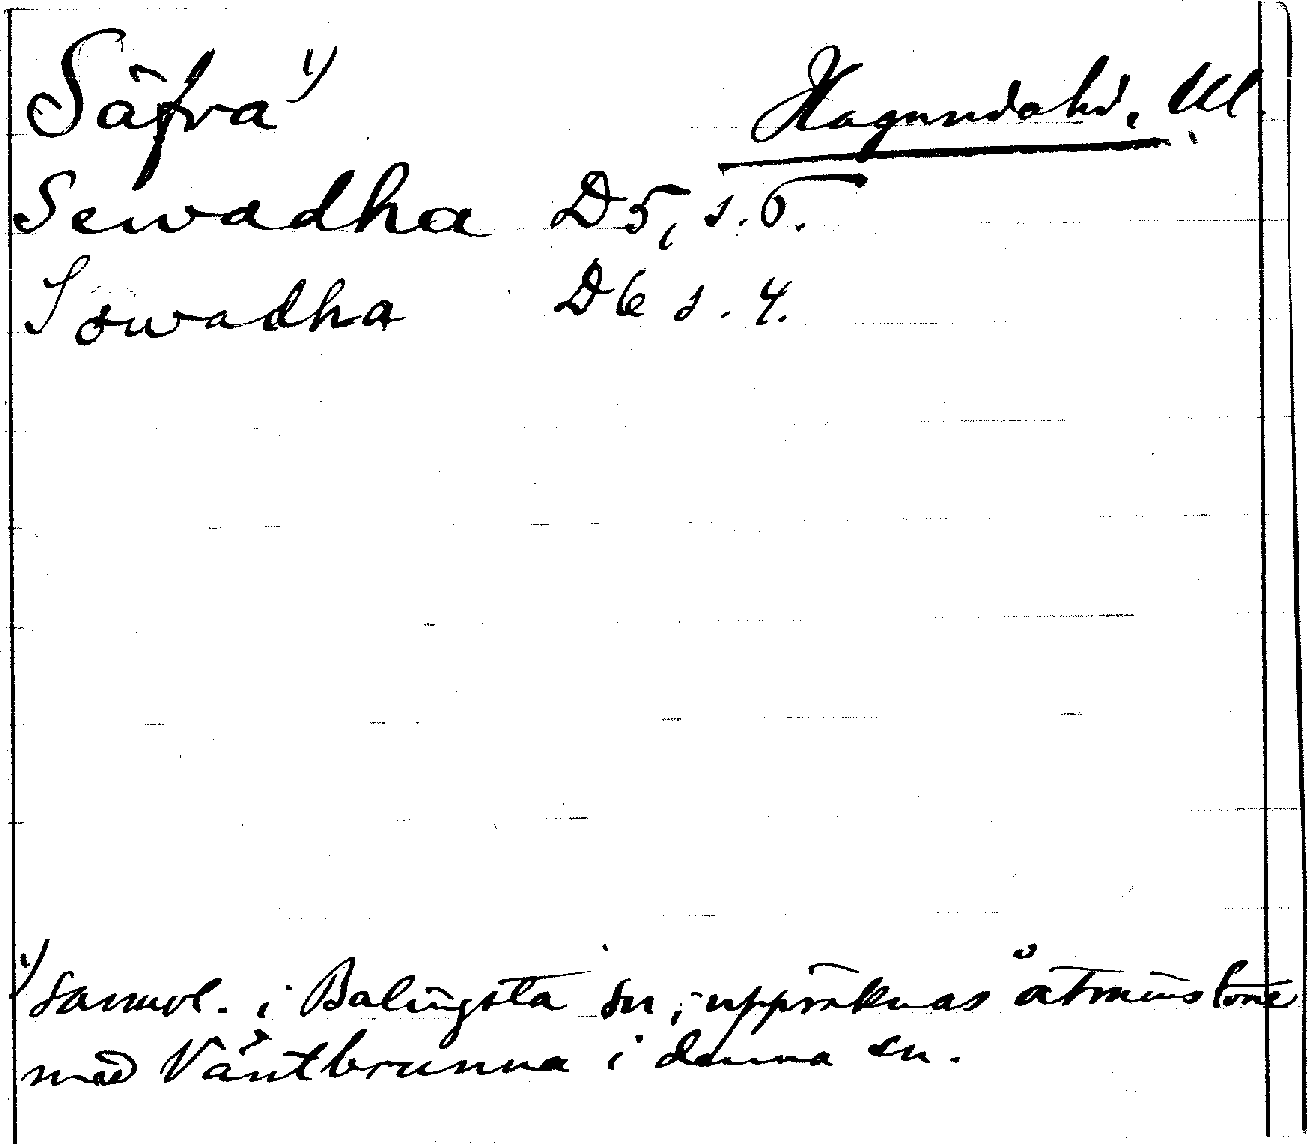 Säfva 1) Hagundahd, Ul.
Sewadha D5, s. 6.
Sowadha D6 s. 4.
1) sannol. i Balingsta sn, uppräknas åtminstone
med Väntbrunna i denna sn.